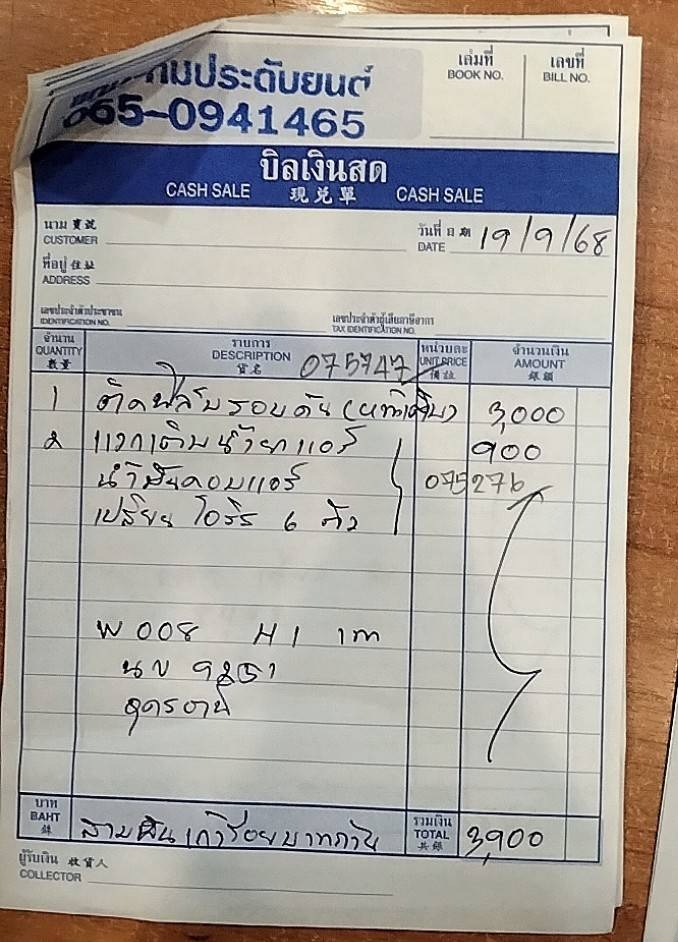 เล่มที่ เลขที่
BOOK NO. BILL NO.
ประดับยนต์
065-0941465
บิลเงินสด
CASH SALE 現兌單 CASH SALE
นาม 寶號 วันที่ 日期
CUSTOMER DATE 19/9/68
ที่อยู่ 住址
ADDRESS
เลขประจำตัวประชาชน เลขประจำตัวผู้เสียภาษีอากร
IDENTIFICATION NO. TAX IDENTIFICATION NO.
จำนวน รายการ หน่วยละ จำนวนเงิน
QUANTITY DESCRIPTION 075747 UNIT PRICE AMOUNT
數量 貨名 價註 銀額
1 ติดฟิล์มรอบคัน 3,000
2 แวกเติมน้ำยาแอร์ 900
น้ำมันคอมแอร์ 075276
เปลี่ยนโอริง 6 ตัว
W008 H1 1m
นข 9251
อุดรธานี
บาท รวมเงิน
BAHT สามพันเก้าร้อยบาทถ้วน TOTAL 3,900
銖 共銀
ผู้รับเงิน 收貨人
COLLECTOR